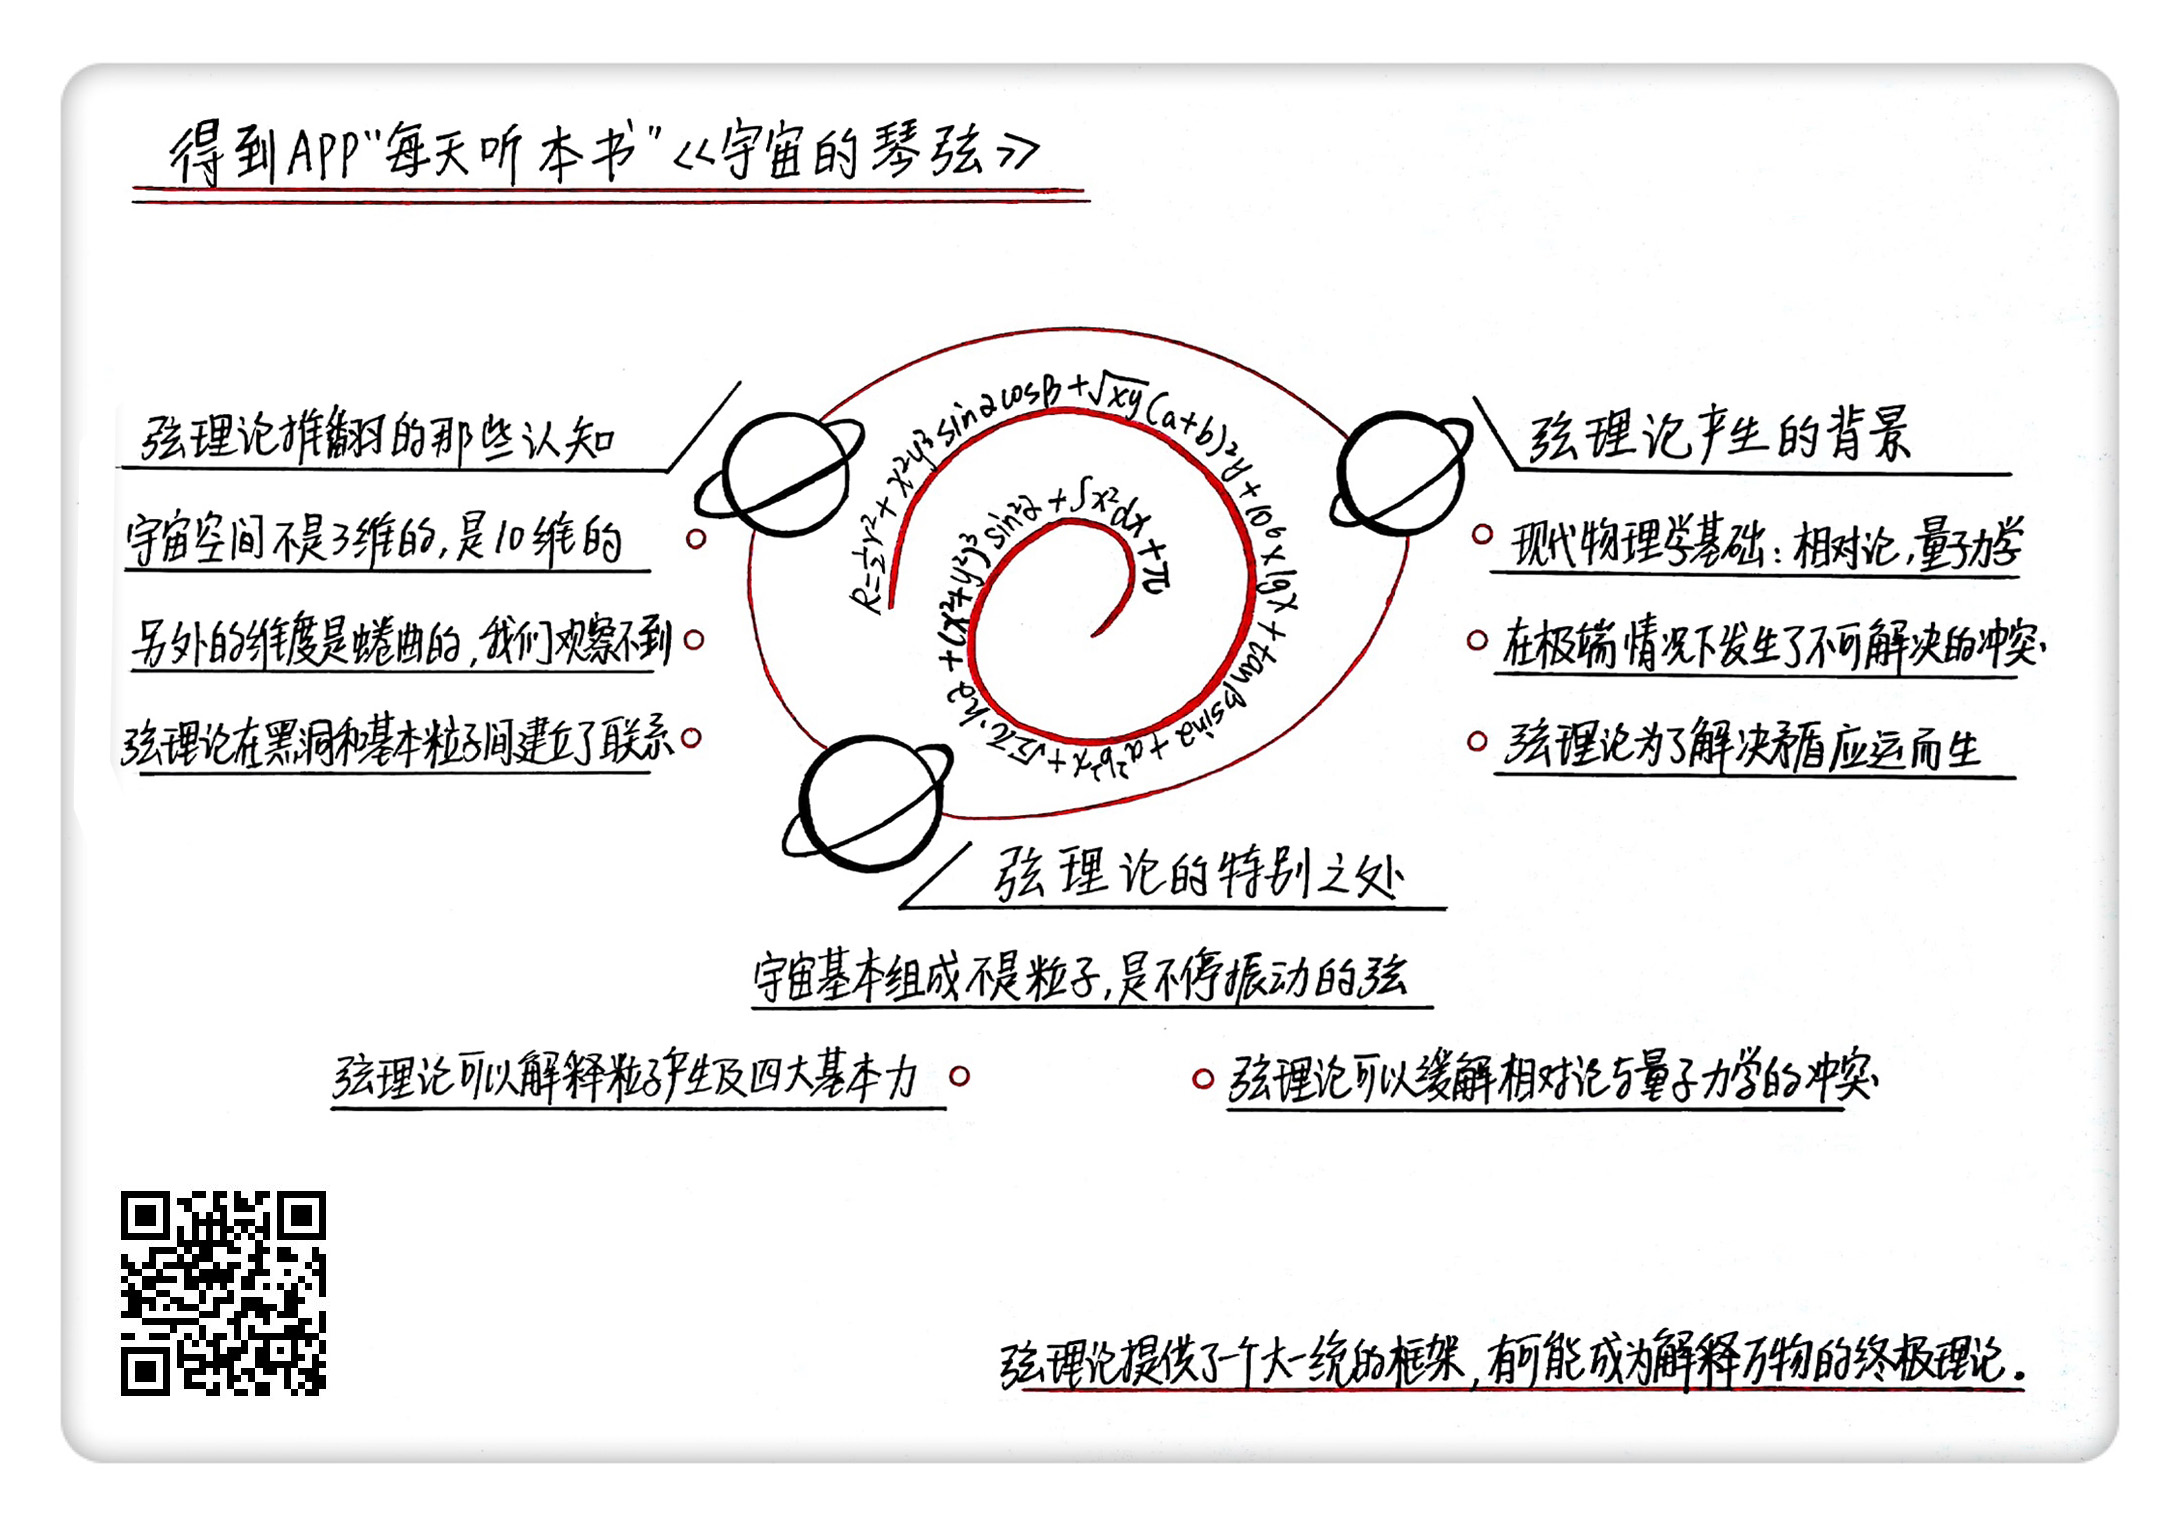 得到APP“每天听本书”《宇宙的琴弦》
弦理论推翻的那些认知
宇宙空间不是3维的，是10维的
另外的维度是蜷曲的，我们观察不到
弦理论在黑洞和基本粒子间建立了联系
R=½r²+x²y³sin2cosβ+√xy(a+b)²y+106xlgx+tanβsin2+a²b²x+√2π·h2+(x²+y²)y³sin²2+∫x²dx+π
弦理论产生的背景
现代物理学基础：相对论，量子力学
在极端情况下发生了不可解决的冲突
弦理论为了解决矛盾应运而生
弦理论的特别之处
宇宙基本组成不是粒子，是不停振动的弦
弦理论可以解释粒子产生及四大基本力
弦理论可以缓解相对论与量子力学的冲突
弦理论提供了一个大一统的框架，有可能成为解释万物的终极理论.